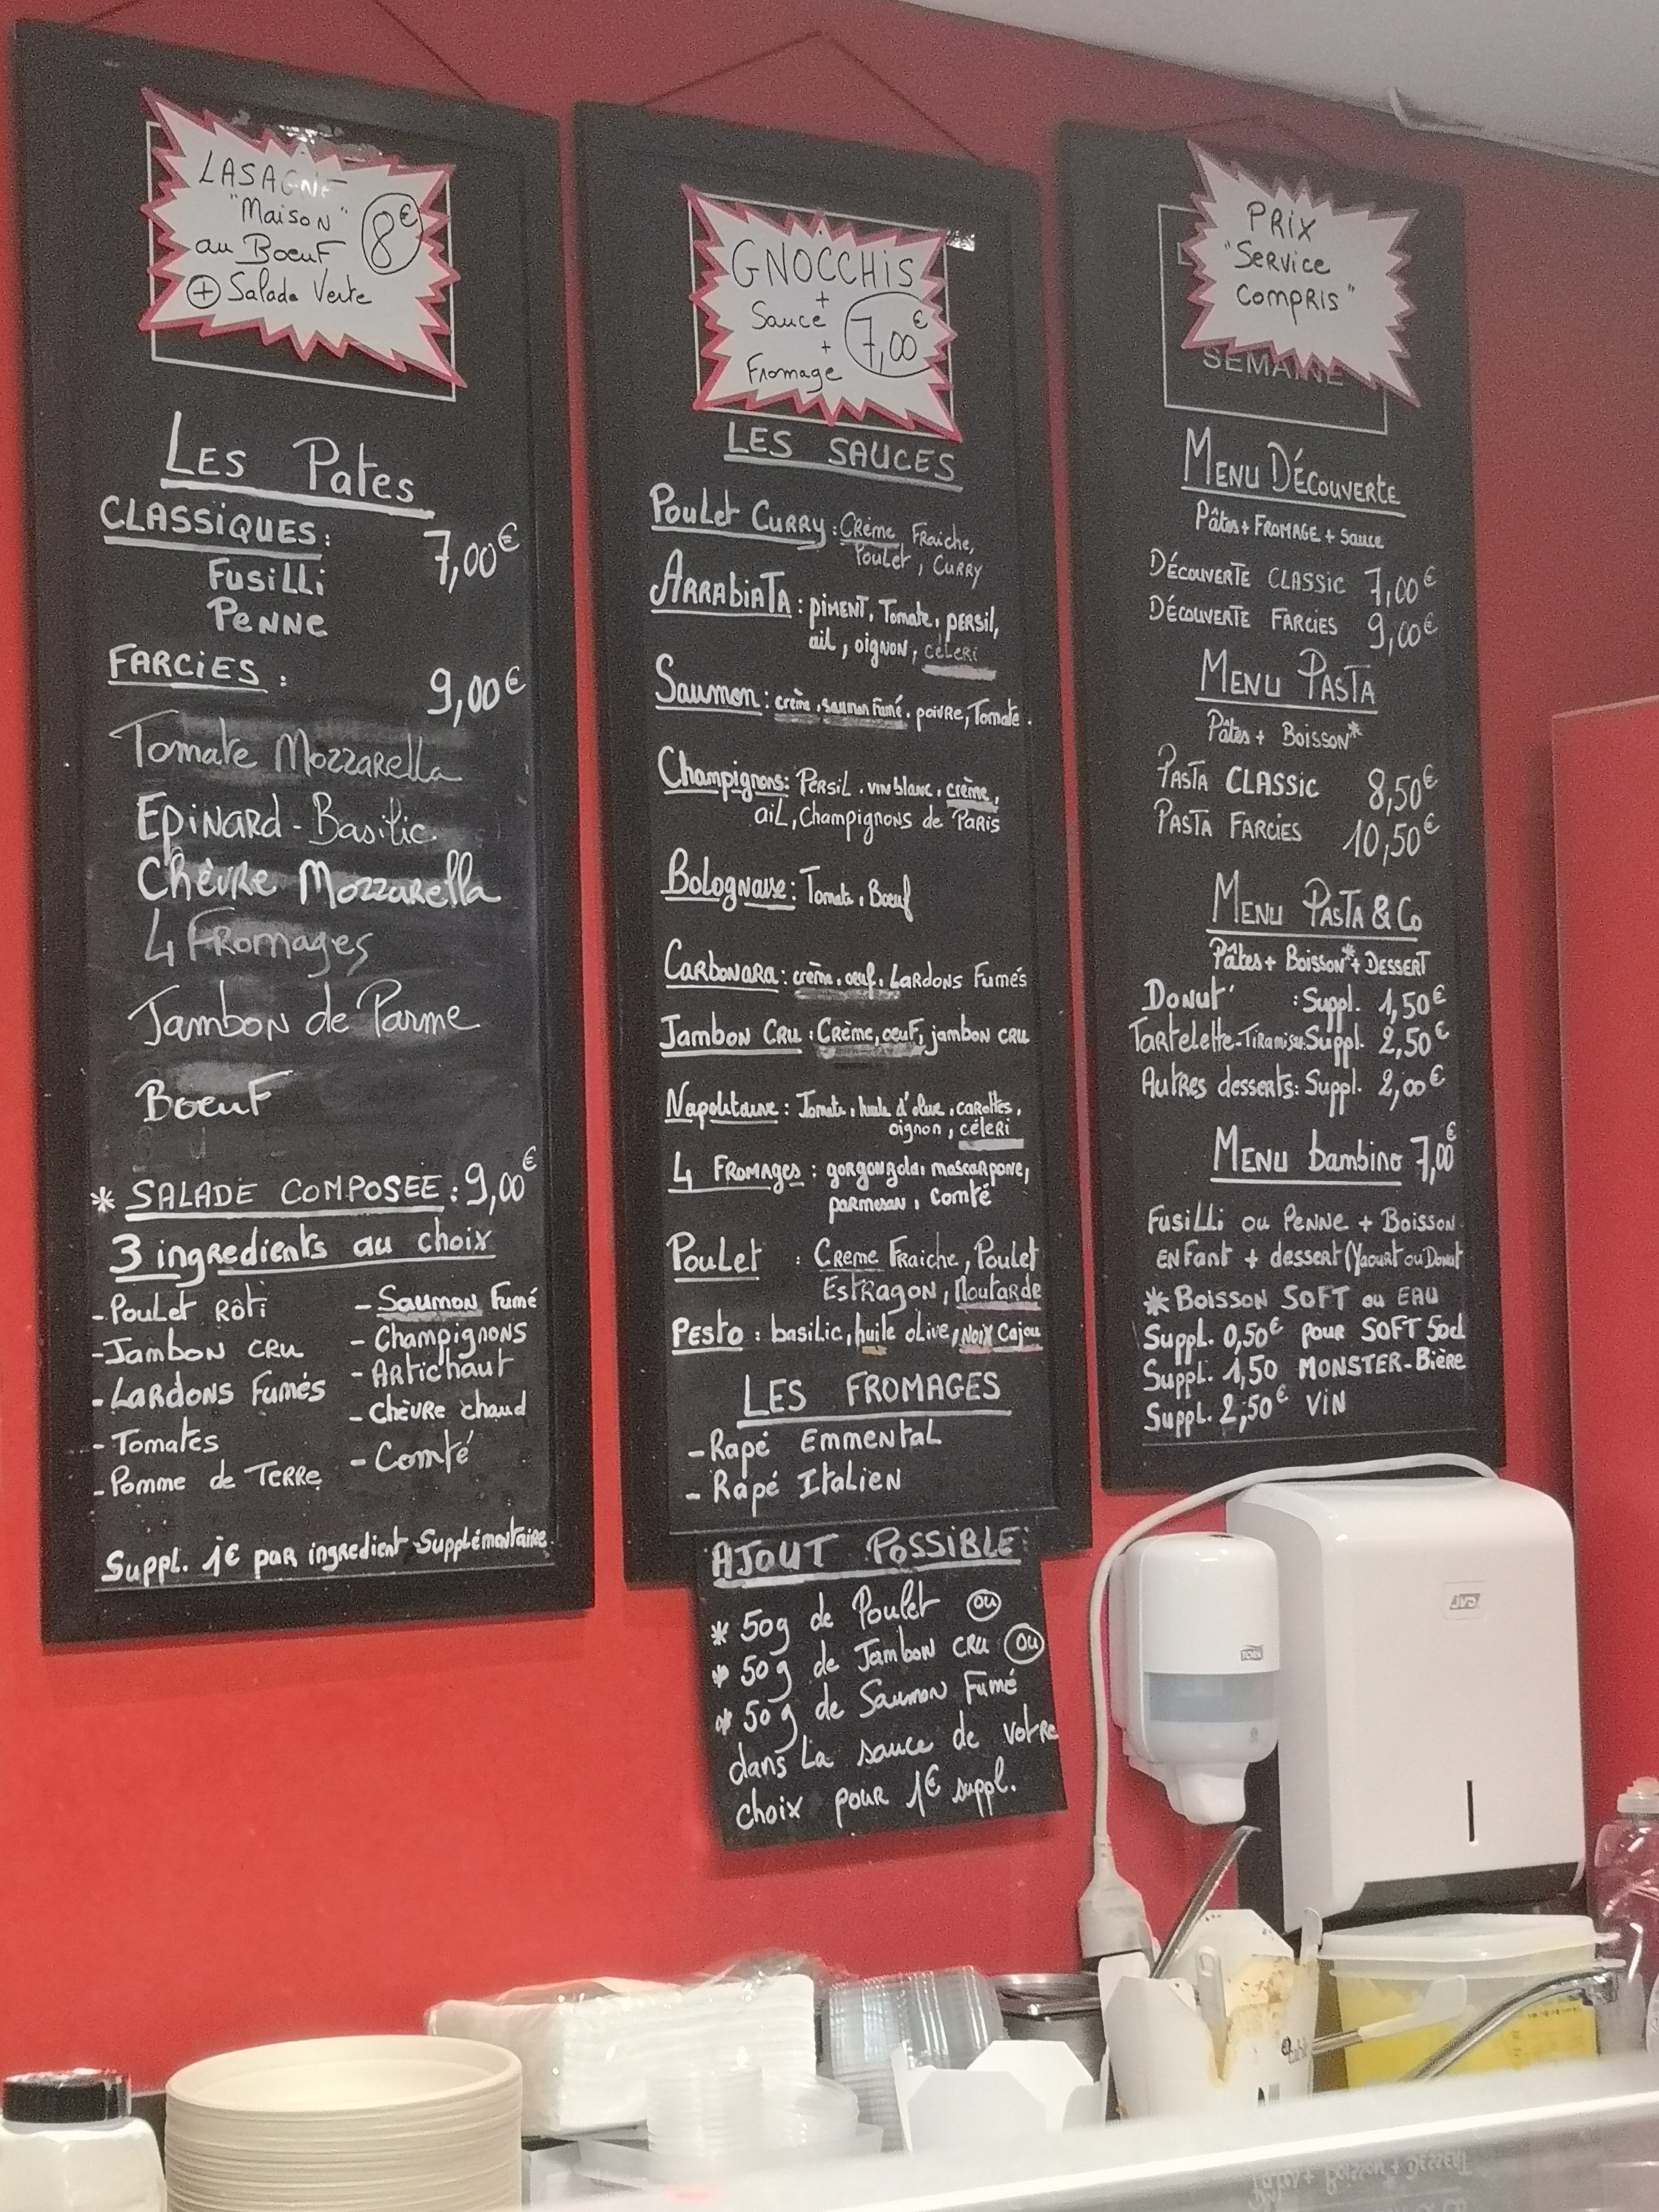 LASAGNE
"Maison"
au Boeuf
8€
+ Salade Verte
LES Pates
CLASSIQUES:
7,00€
FUSILLI
PENNE
FARCIES :
9,00€
Tomate Mozzarella
Epinard-Basilic
Chèvre Mozzarella
4 Fromages
Jambon de Parme
Boeuf
* SALADE COMPOSEE : 9,00€
3 ingredients au choix
- Poulet Rôti
- Jambon cru
- Lardons Fumés
- Tomates
- Pomme de Terre
- Saumon Fumé
- Champignons
- Artichaut
- Chèvre chaud
- Comté
Suppl. 1€ par ingredient Supplémentaire
GNOCCHIS
+
Sauce
+
Fromage
7,00€
LES SAUCES
Poulet Curry : Crème Fraiche,
Poulet, Curry
ARRABIATA : piment, Tomate, persil,
ail, oignon, céleri
Saumon : crème, saumon fumé, poivre, Tomate.
Champignons: Persil, vin blanc, crème,
ail, Champignons de Paris
Bolognaise : Tomate, Boeuf
Carbonara : crème, oeuf, Lardons Fumés
Jambon Cru : Crème, oeuf, jambon cru
Napolitaine : Tomate, huile d'olive, carottes,
oignon, céleri
4 Fromages : gorgongola, mascarpone,
parmesan, Comté
Poulet : Creme Fraiche, Poulet
Estragon, Moutarde
Pesto : basilic, huile olive, Noix Cajou
LES FROMAGES
- Rapé Emmental
- Rapé Italien
AJOUT POSSIBLE:
* 50g de Poulet ou
* 50g de Jambon cru ou
* 50g de Saumon Fumé
dans La sauce de votre
choix pour 1€ suppl.
PRIX
"Service
Compris"
SEMAINE
MENU DÉCOUVERTE
Pâtes + FROMAGE + Sauce
DÉCOUVERTE CLASSIC 7,00€
DÉCOUVERTE FARCIES 9,00€
MENU PASTA
Pâtes + Boisson*
PASTA CLASSIC 8,50€
PASTA FARCIES 10,50€
MENU PASTA & Co
Pâtes + Boisson* + DESSERT
DONUT' : Suppl. 1,50€
Tartelette-Tiramisu: Suppl. 2,50€
Autres desserts: Suppl. 2,00€
MENU bambino 7,00€
FUSILLI ou PENNE + Boisson
ENFant + dessert (Yaourt ou Donut
* BOISSON SOFT ou EAU
Suppl. 0,50€ pour SOFT 50cl
Suppl. 1,50 MONSTER-Bière
Suppl. 2,50€ VIN
JVD
TORK